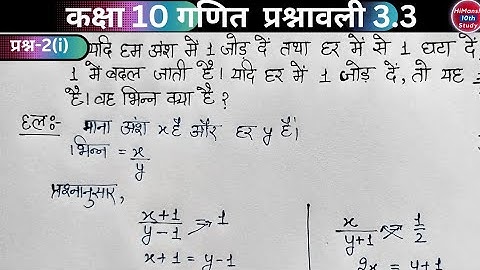 कक्षा 10 गणित प्रश्नावली 3.3
HiMansi
10th
Study
प्रश्न-2(i)
यदि हम अंश में 1 जोड़ दें तथा हर में से 1 घटा दें,
1 में बदल जाती है। यदि हर में 1 जोड़ दें, तो यह
है। वह भिन्न क्या है?
हल:- माना अंश x है और हर y है।
भिन्न = x/y
प्रश्नानुसार,
x+1/y-1 = 1
x+1 = y-1
x/y+1 = 1/2
2x = y+1